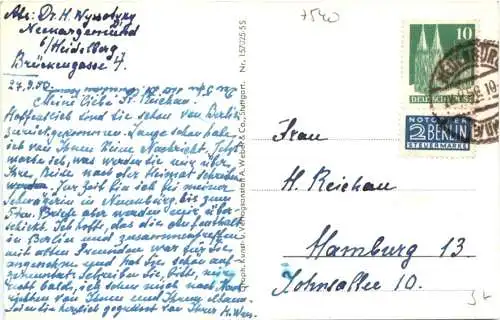 Abs: Dr. H. Wyssotzky
Neckargemünd
b/Heidelberg
Brückengasse 4.
27.9.50.
Meine liebe Fr. Reichau.
Hoffentlich sind Sie schon von Berlin
zurückgekommen. Lange schon habe
ich von Ihnen keine Nachricht. Jetzt
warte ich, was werden Sie mir über
Ihre Reise nach der Heimat schreiben
Zur Zeit bin ich bei meiner
Schwägerin in Neuenburg bis zum
5ten. Briefe aber werden mir über-
schickt. Ich hoffe, das die Aufenthalt
in Berlin und zusammentreffen
mit alten Freunden war für Sie
angenehm und hat Sie schon auf-
Schreiben Sie, bitte, mir
recht bald, ich sehne mich nach Nach-
richten von Ihnen und Ihrem
Sie herzlich gegrüsst von Ihrer H. Wyss.
Steph. Kunst- u. Verlagsanstalt A. Weber & Co., Stuttgart. Nr. 157025 SS
7540
10
DEUTSCHE POST
NOTOPFER
2 BERLIN
STEUERMARKE
Frau
H. Reichau
Hamburg 13
Johnsallee 10.